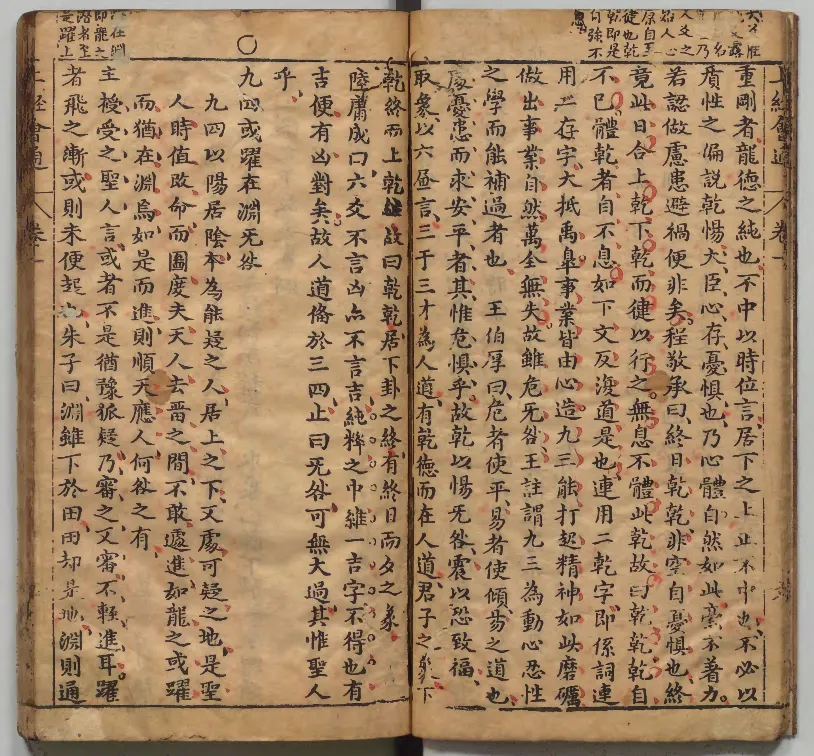 人爻之
原自至
健也乾
乾即是
自強不
息
上經會通 卷一
重剛者龍德之純也不中以時位言居下之上正不中也不必以
質性之偏說乾惕大臣心存憂惧也乃心體自然如此毫不著力
若認做慮患避禍便非矣程敬承曰終日乾乾非空自憂惧也終
竟此日合上乾下乾而徤以行之無息不體此乾故曰乾乾乾自
不已體乾者自不息如下文反復道是也連用二乾字即係詞連
用二存字大抵禹臯事業皆由心造九三能打起精神如此磨礪
做出事業自然萬全無失故雖危无咎王註謂九三為動心忍性
之學而能補過者也 王伯厚曰危者使平易者使傾易之道也
處憂患而求安平者其惟危惧乎故乾以惕无咎震以恐致福
取象以六畫言三于三才為人道有乾德而在人道君子之象下
乾終而上乾繼故曰乾乾居下卦之終有終日而夕之象
陸庸成曰六爻不言凶亦不言吉純粹之中雖一吉字不得也有
吉便有凶對矣故人道脩於三四止曰无咎可無大過其惟聖人
乎
九四或躍在淵无咎
九四以陽居陰本為能疑之人居上之下又處可疑之地是聖
人時值改命而圖度夫天人去畱之間不敢遽進如龍之或躍
而猶在淵焉如是而進則順天應人何咎之有
主授受之聖人言或者不是猶豫狐疑乃審之又審不輕進耳躍
者飛之漸或則未便起也朱子曰淵雖下於田田却是地淵則通
在淵
即龍之
潛者至
是躍上
上經會通 卷一